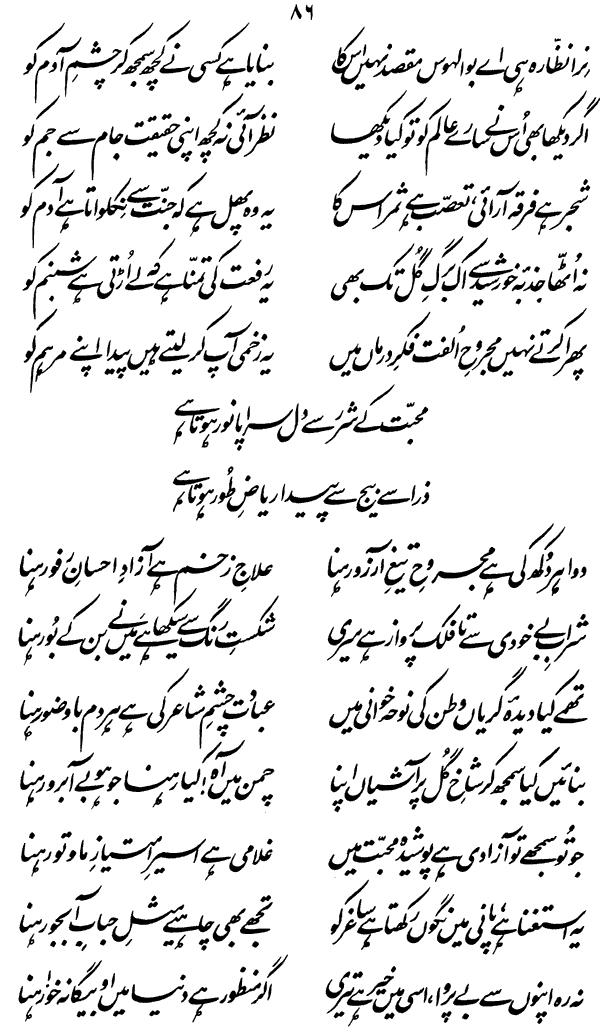 ۸۶
نرا نظّارہ ہی اے بوالہوس مقصد نہیں اس کا بنایا ہے کسی نے کچھ سمجھ کر چشمِ آدم کو
اگر دیکھا بھی اُس نے سارے عالم کو تو کیا دیکھا نظر آئی نہ کچھ اپنی حقیقت جام سے جم کو
شجر ہے فرقہ آرائی، تعصّب ہے ثمر اس کا یہ وہ پھل ہے کہ جنّت سے نکلواتا ہے آدم کو
نہ اُٹھا جذبۂ خورشید سے اک برگِ گُل تک بھی یہ رفعت کی تمنّا ہے کہ لے اُڑتی ہے شبنم کو
پھرا کرتے نہیں مجروحِ اُلفت فکرِ درماں میں یہ زخمی آپ کر لیتے ہیں پیدا اپنے مرہم کو
محبّت کے شرر سے دل سراپا نور ہوتا ہے
ذرا سے بیج سے پیدا ریاضِ طُور ہوتا ہے
دوا ہر دُکھ کی ہے مجروحِ تیغِ آرزو رہنا علاجِ زخم ہے آزادِ احسانِ رفو رہنا
شرابِ بے خودی سے تا فلک پرواز ہے میری شکستِ رنگ سے سیکھا ہے مَیں نے بن کے بُو رہنا
تھمے کیا دیدۂ گریاں وطن کی نوحہ خوانی میں عبادت چشمِ شاعر کی ہے ہر دم با وضو رہنا
بنائیں کیا سمجھ کر شاخِ گُل پر آشیاں اپنا چمن میں آہ! کیا رہنا جو ہو بے آبرو رہنا
جو تُو سمجھے تو آزادی ہے پوشیدہ محبّت میں غلامی ہے اسیرِ امتیازِ ما و تو رہنا
یہ استغنا ہے، پانی میں نگوں رکھتا ہے ساغر کو تجھے بھی چاہیے مثلِ حبابِ آبجو رہنا
نہ رہ اپنوں سے بے پروا، اسی میں خیر ہے تیری اگر منظور ہے دنیا میں او بیگانہ خو! رہنا